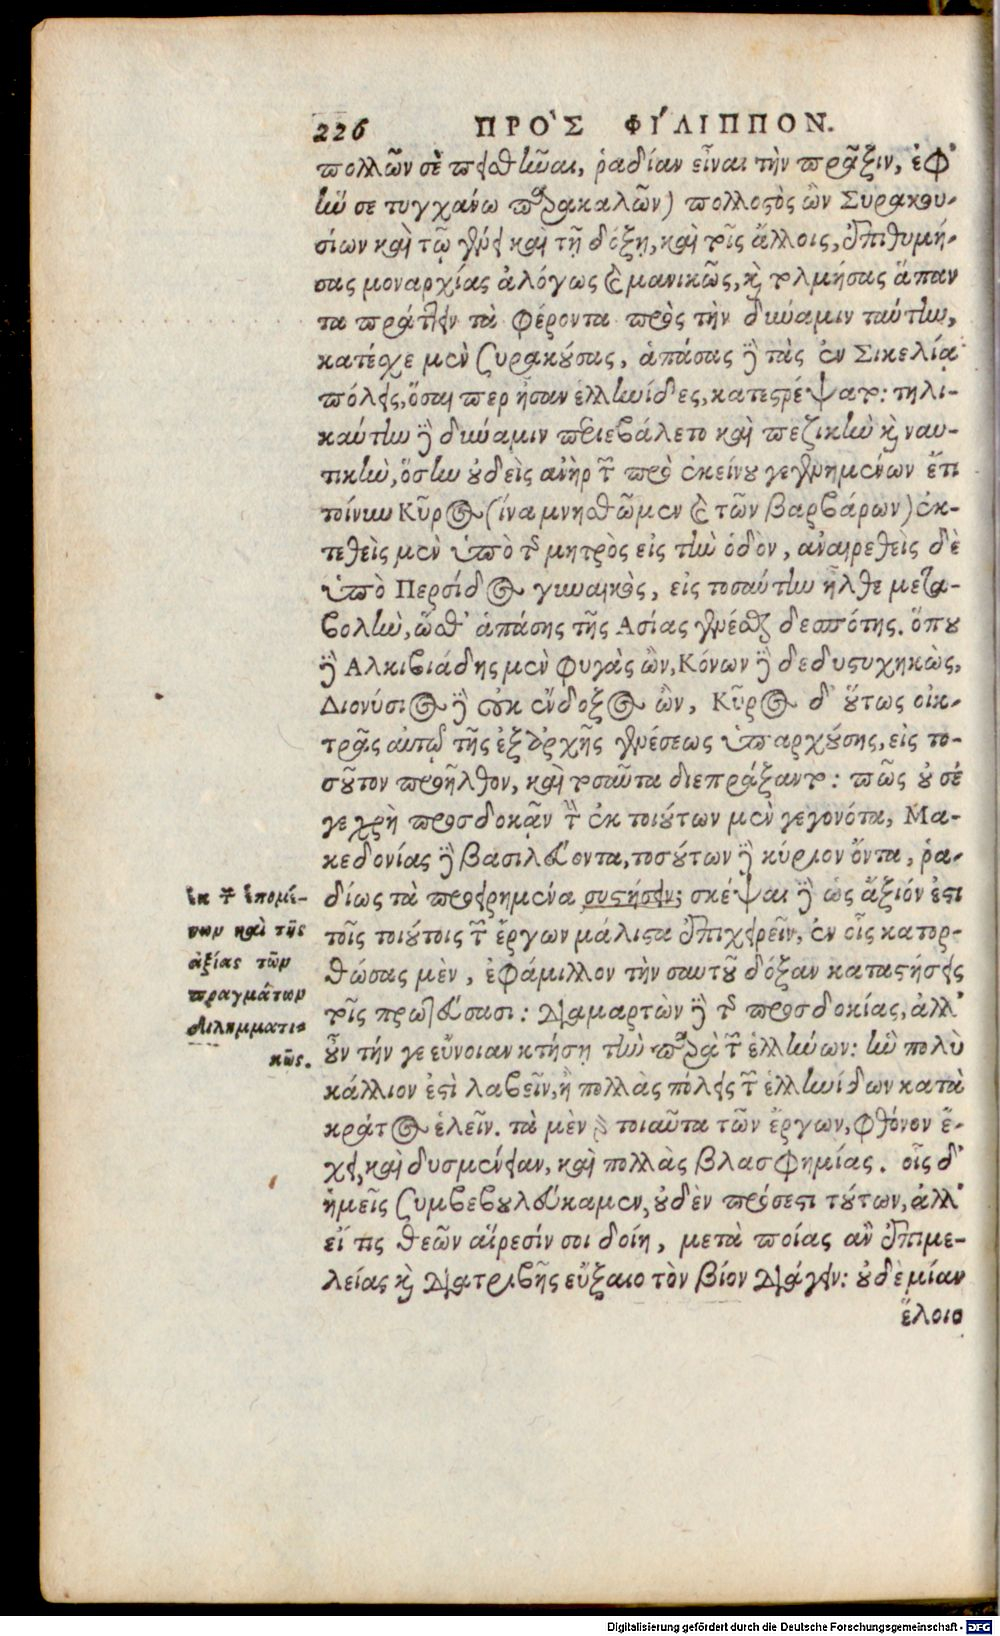 226 ΠΡΟ᾿Σ ΦΙ´ΛΙΠΠΟΝ.
πολλῶν σὲ πεισθῆναι, ῥαδίαν εἶναι τὴν πρᾶξιν, ἐφ᾽
ἥν σε τυγχάνω παρακαλῶν) πολλοστὸς ὢν Συρακου-
σίων καὶ τῷ γένει καὶ τῇ δόξῃ, καὶ τοῖς ἄλλοις, ἐπιθυμή-
σας μοναρχίας ἀλόγως καὶ μανικῶς, καὶ τολμήσας ἅπαν
τα πράττειν τὰ φέροντα πρὸς τὴν δύναμιν ταύτην,
κατέσχε μὲν Συρακούσας, ἁπάσας δὲ τὰς ἐν Σικελίᾳ
πόλεις, ὅσαι περ ἦσαν ἑλληνίδες, κατεστρέψατο: τηλι-
καύτην δὲ δύναμιν περιεβάλετο καὶ πεζικὴν καὶ ναυ-
τικὴν, ὅσην οὐδεὶς ἀνὴρ τῶν πρὸ ἐκείνου γεγενημένων ἔτι
τοίνυν Κῦρος (ἵνα μνησθῶμεν καὶ τῶν βαρβάρων) ἐκ-
τεθεὶς μὲν ὑπὸ τῆς μητρὸς εἰς τὴν ὁδὸν, ἀναιρεθεὶς δὲ
ὑπὸ Περσίδος γυναικὸς, εἰς τοσαύτην ἦλθε μετα-
βολὴν, ὥσθ᾽ ἁπάσης τῆς Ασίας γενέσθαι δεσπότης. ὅπου
δὲ Αλκιβιάδης μὲν φυγὰς ὢν, Κόνων δὲ δεδυστυχηκὼς,
Διονύσιος δὲ οὐκ ἔνδοξος ὢν, Κῦρος δ᾽ οὕτως οἰκ-
τρᾶς αὐτῷ τῆς ἐξ ἀρχῆς γενέσεως ὑπαρχούσης, εἰς το-
σοῦτον προῆλθον, καὶ τοσαῦτα διεπράξαντο: πῶς οὐ σέ
γε χρὴ προσδοκᾷν τὸν ἐκ τοιούτων μὲν γεγονότα, Μα-
κεδονίας δὲ βασιλεύοντα, τοσούτων δὲ κύριον ὄντα, ῥα-
δίως τὰ προειρημένα συστήσειν; σκέψαι δὲ ὡς ἄξιόν ἐστι
τοῖς τοιούτοις τῶν ἔργων μάλιστα ἐπιχειρεῖν, ἐν οἷς κατορ-
θώσας μὲν, ἐφάμιλλον τὴν σαυτοῦ δόξαν καταστήσεις
τοῖς πρωτεύσασι: διαμαρτὼν δὲ τῆς προσδοκίας, ἀλλ᾽
οὖν τήν γε εὔνοιαν κτήσῃ τὴν παρὰ τῶν ἑλλήνων: ἣν πολὺ
κάλλιον ἐστὶ λαβεῖν, ἢ πολλὰς πόλεις τῶν ἑλληνίδων κατὰ
κράτος ἑλεῖν. τὰ μὲν γὰρ τοιαῦτα τῶν ἔργων, φθόνον ἔ-
χει, καὶ δυσμένειαν, καὶ πολλὰς βλασφημίας. οἷς δ᾽
ἡμεῖς συμβεβουλεύκαμεν, οὐδὲν πρόσεστι τούτων, ἀλλ᾽
εἴ τις θεῶν αἵρεσίν σοι δοίη, μετὰ ποίας ἂν ἐπιμε-
λείας καὶ διατριβῆς εὔξαιο τὸν βίον διάγειν: οὐδεμίαν
ἕλοιο
ἐκ τῶν ἑπομέ-
νων καὶ τῆς
ἀξίας τῶν
πραγμάτων
διλημματι-
κῶς.
Digitalisierung gefördert durch die Deutsche Forschungsgemeinschaft - DFG